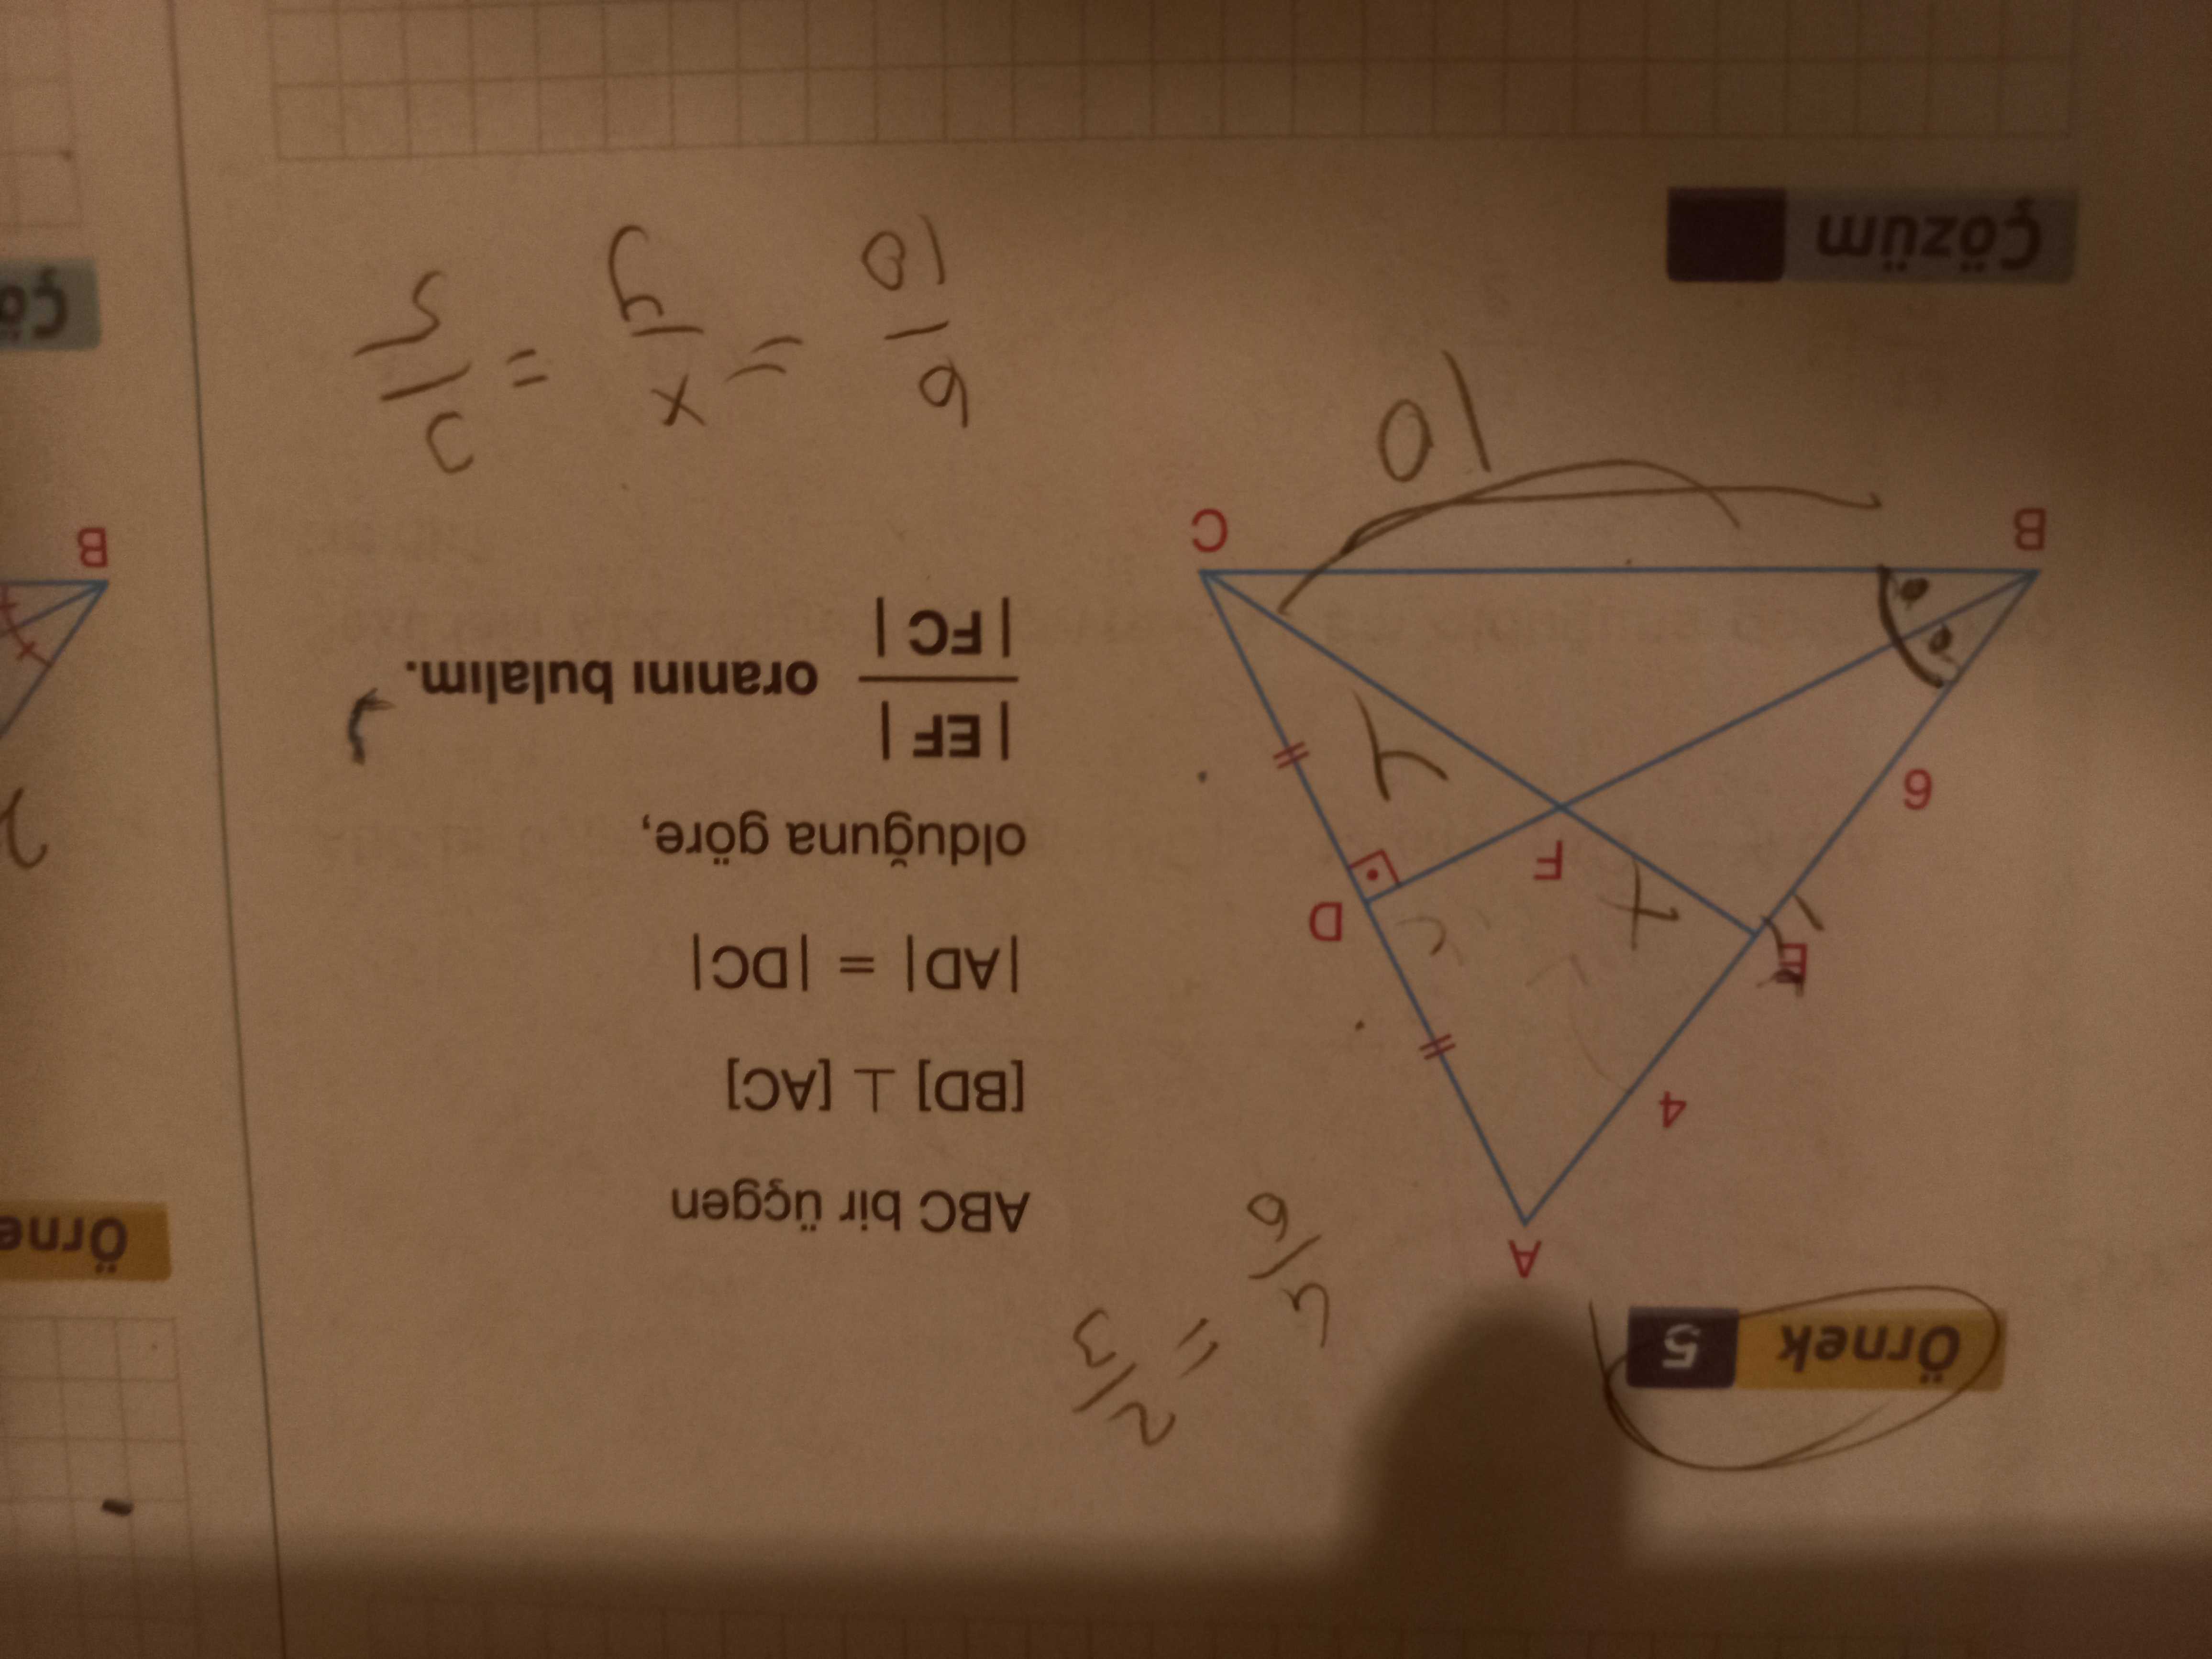 Örnek 5
A
4
E
6
B
C
D
F
x
y
10
4/6 = 2/3
ABC bir üçgen
[BD] ⊥ [AC]
|AD| = |DC|
olduğuna göre,
|EF|
|FC|
oranını bulalım.
6/10 = x/y = 3/5
Çözüm
Örne
B
Çö